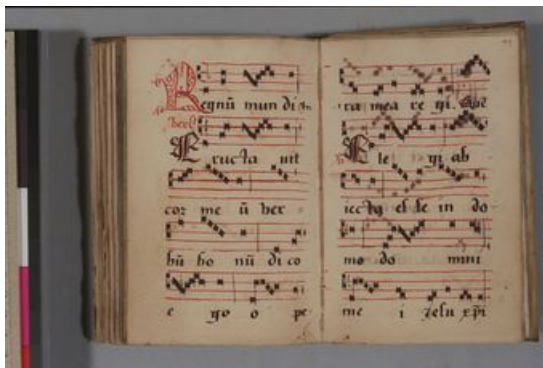 Regnū mun di
E ructa uit
cor me ū ver
bū bo nū di co
e go o pe
ra mea re gi.
E le gi ab
iecta esse in do
mo do mini
me i Jesu xp̄i